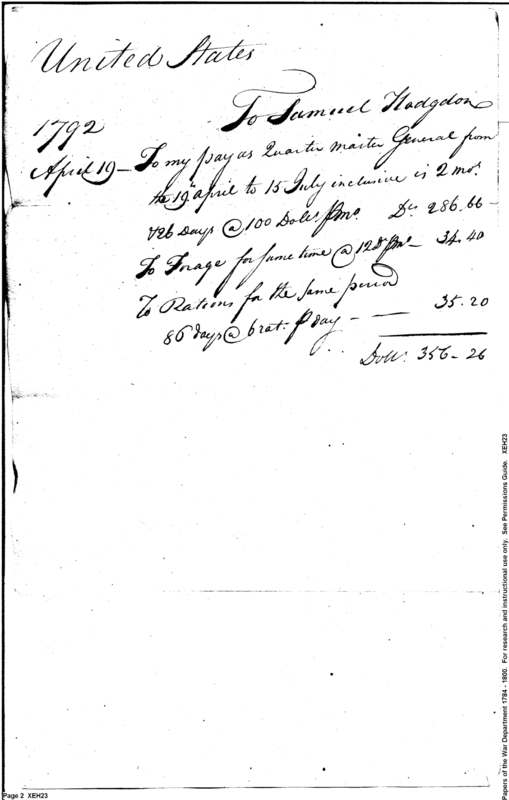 United States
To Samuel Hodgdon
1792
April 19 - To my pay as Quarter master General from
the 19th april to 15 July inclusive is 2 mos.
& 26 Days @ 100 Dolrs. pr mo. Drs. 286.66 -
To Forage for same time @ 12 Ds. pr mo - 34.40
To Rations for the same period
86 days @ 6 rat. pr day - - 35.20
Dolls. 356 - 26
Page 2 XEH23
Papers of the War Department 1784 - 1800. For research and instructional use only. See Permissions Guide. XEH23